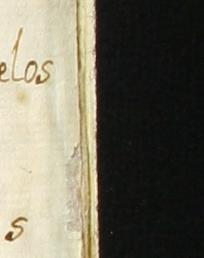 elos
s